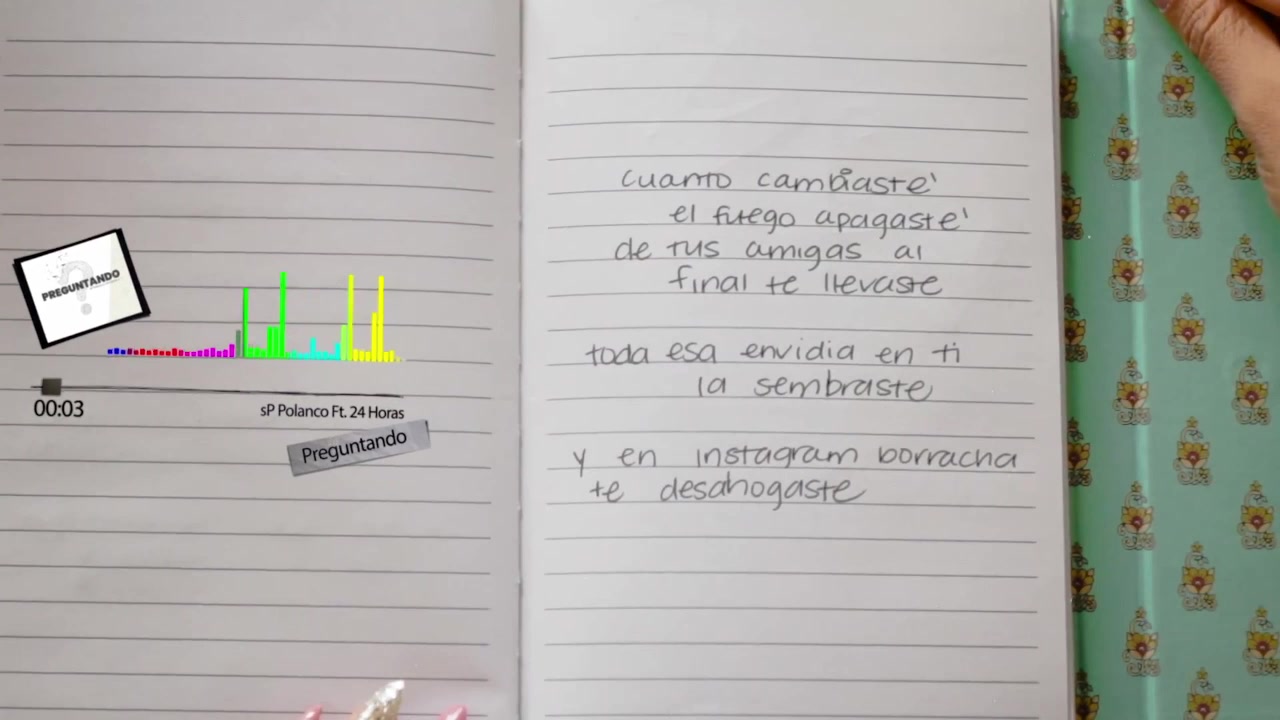 PREGUNTANDO
00:03
sP Polanco Ft. 24 Horas
Preguntando
cuanto cambiaste'
el fuego apagaste'
de tus amigas al
final te llevaste
toda esa envidia en ti
la sembraste
y en instagram borracha
te desahogaste